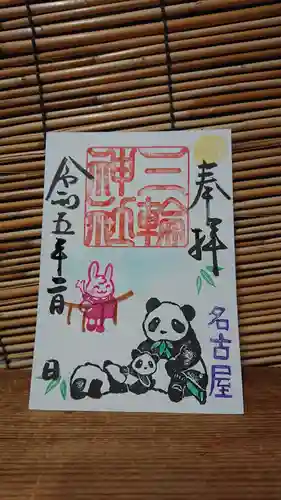 奉拝
三輪
神社
名古屋
令和五年二月
日